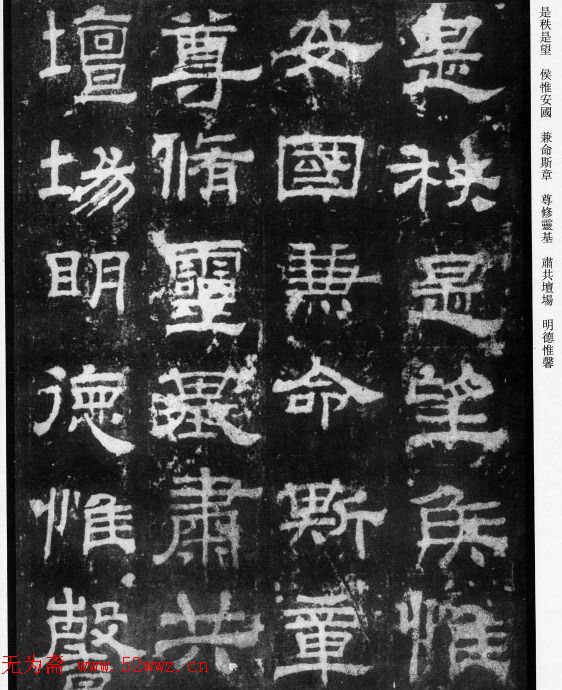 是秩是望侯惟
安國兼命斯章
尊脩靈基肅共
壇場明德惟馨
是秩是望　侯惟安國　兼命斯章　尊修靈基　肅共壇場　明德惟馨
无为斋 www.52wwz.cn